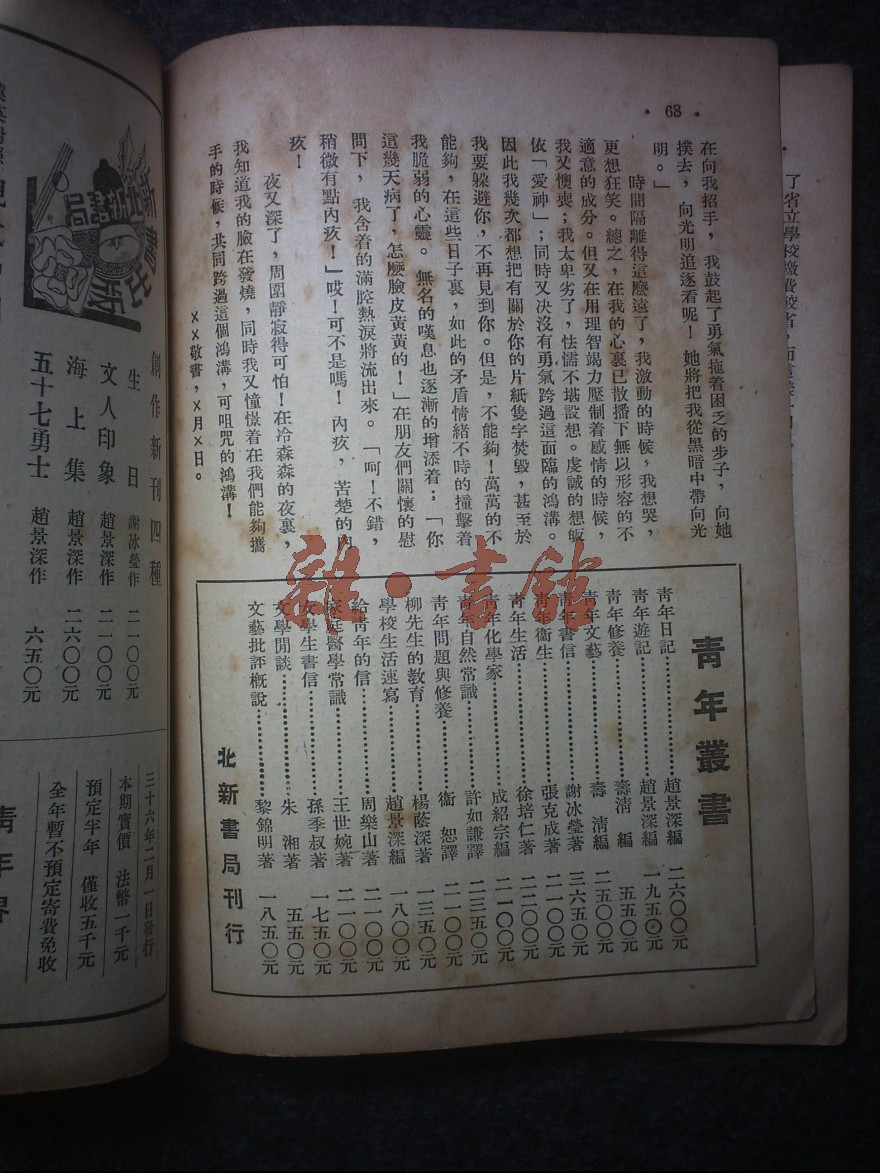 ·68·
在向我招手，我鼓起了勇氣拖着困乏的步子，向她
撲去，向光明追逐着呢！她將把我從黑暗中帶向光
明。」
時間隔離得這麼遠了，我激動的時候，我想哭，
更想狂笑。總之，在我的心裏已散播下無以形容的不
適意的成分。但又在用理智竭力壓制着感情的時候，
我又懊喪；我太卑劣了，怯懦不堪設想。虔誠的想皈
依「愛神」；同時又决沒有勇氣跨過這面臨的鴻溝。
因此我幾次都想把有關於你的片紙隻字焚毀，甚至於
我要躲避你，不再見到你。但是，不能夠！萬萬的不
能夠，在這些日子裏，如此的矛盾情緒不時的撞擊着
我脆弱的心靈。無名的嘆息也逐漸的增添着；「你
這幾天病了，怎麼臉皮黃黃的！」在朋友們關懷的慰
問下，我含着的滿腔熱淚將流出來。「呵！不錯，
稍微有點內疚！」哎！可不是嗎！內疚，苦楚的內
疚！
夜又深了，周圍靜寂得可怕！在冷森森的夜裏，
我知道我的臉在發燒，同時我又憧憬着在我們能夠攜
手的時候，共同跨過這個鴻溝，可咀咒的鴻溝！
××敬書，×月×日。
青年叢書
青年日記 趙景深編 二六〇〇元
青年遊記 趙景深編 一九五〇元
青年修養 壽清編 五五〇元
青年文藝 壽清編 二五〇〇元
青年書信 謝冰瑩著 三六五〇元
青年衞生 張克成著 二一〇〇元
青年生活 徐培仁著 二二〇〇元
青年化學家 成紹宗編 二一〇〇元
青年自然常識 許如謙譯 二三五〇元
青年問題與修養 衞恕譯 二一〇〇元
柳先生的教育 楊蔭深著 一三五〇元
學校生活速寫 趙景深編 一八〇〇元
給青年的信 周樂山著 二一〇〇元
家庭醫學常識 王世婉著 二一〇〇元
女學生書信 孫季叔著 一七五〇元
文學閒談 朱湘著 五五〇元
文藝批評概說 黎錦明著 一八五〇元
北新書局刊行
北新書局
新書出版
創作新刊四種
生日 謝冰瑩作 二一〇〇元
文人印象 趙景深作 二一〇〇元
海上集 趙景深作 二六〇〇元
五十七勇士 趙景深作 六五〇元
三十六年二月一日發行
本期實價 法幣一千元
預定半年 僅收五千元
全年暫不預定寄費免收
青年界
了省立學校繳費較省，而
雜·書館